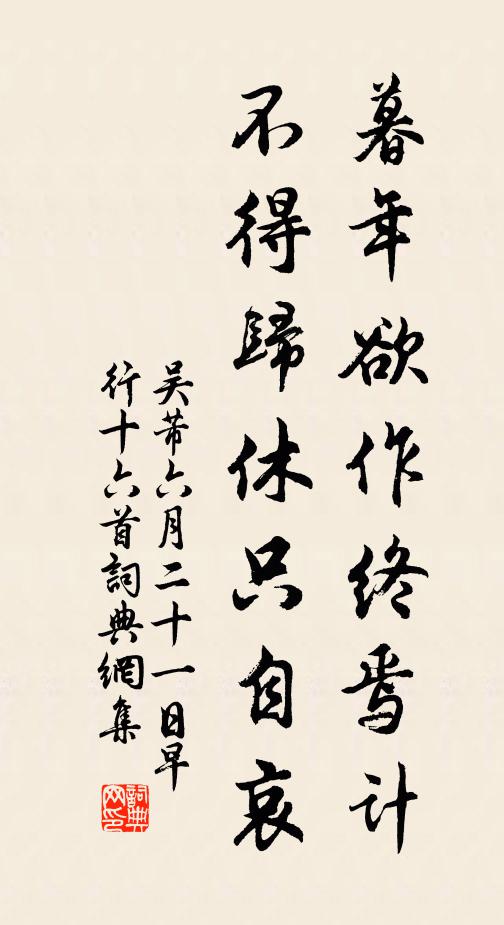 暮年欲作終焉計
不得歸休只自哀
吴芾六月二十一日早
行十六首詞典網集
詞典
网印